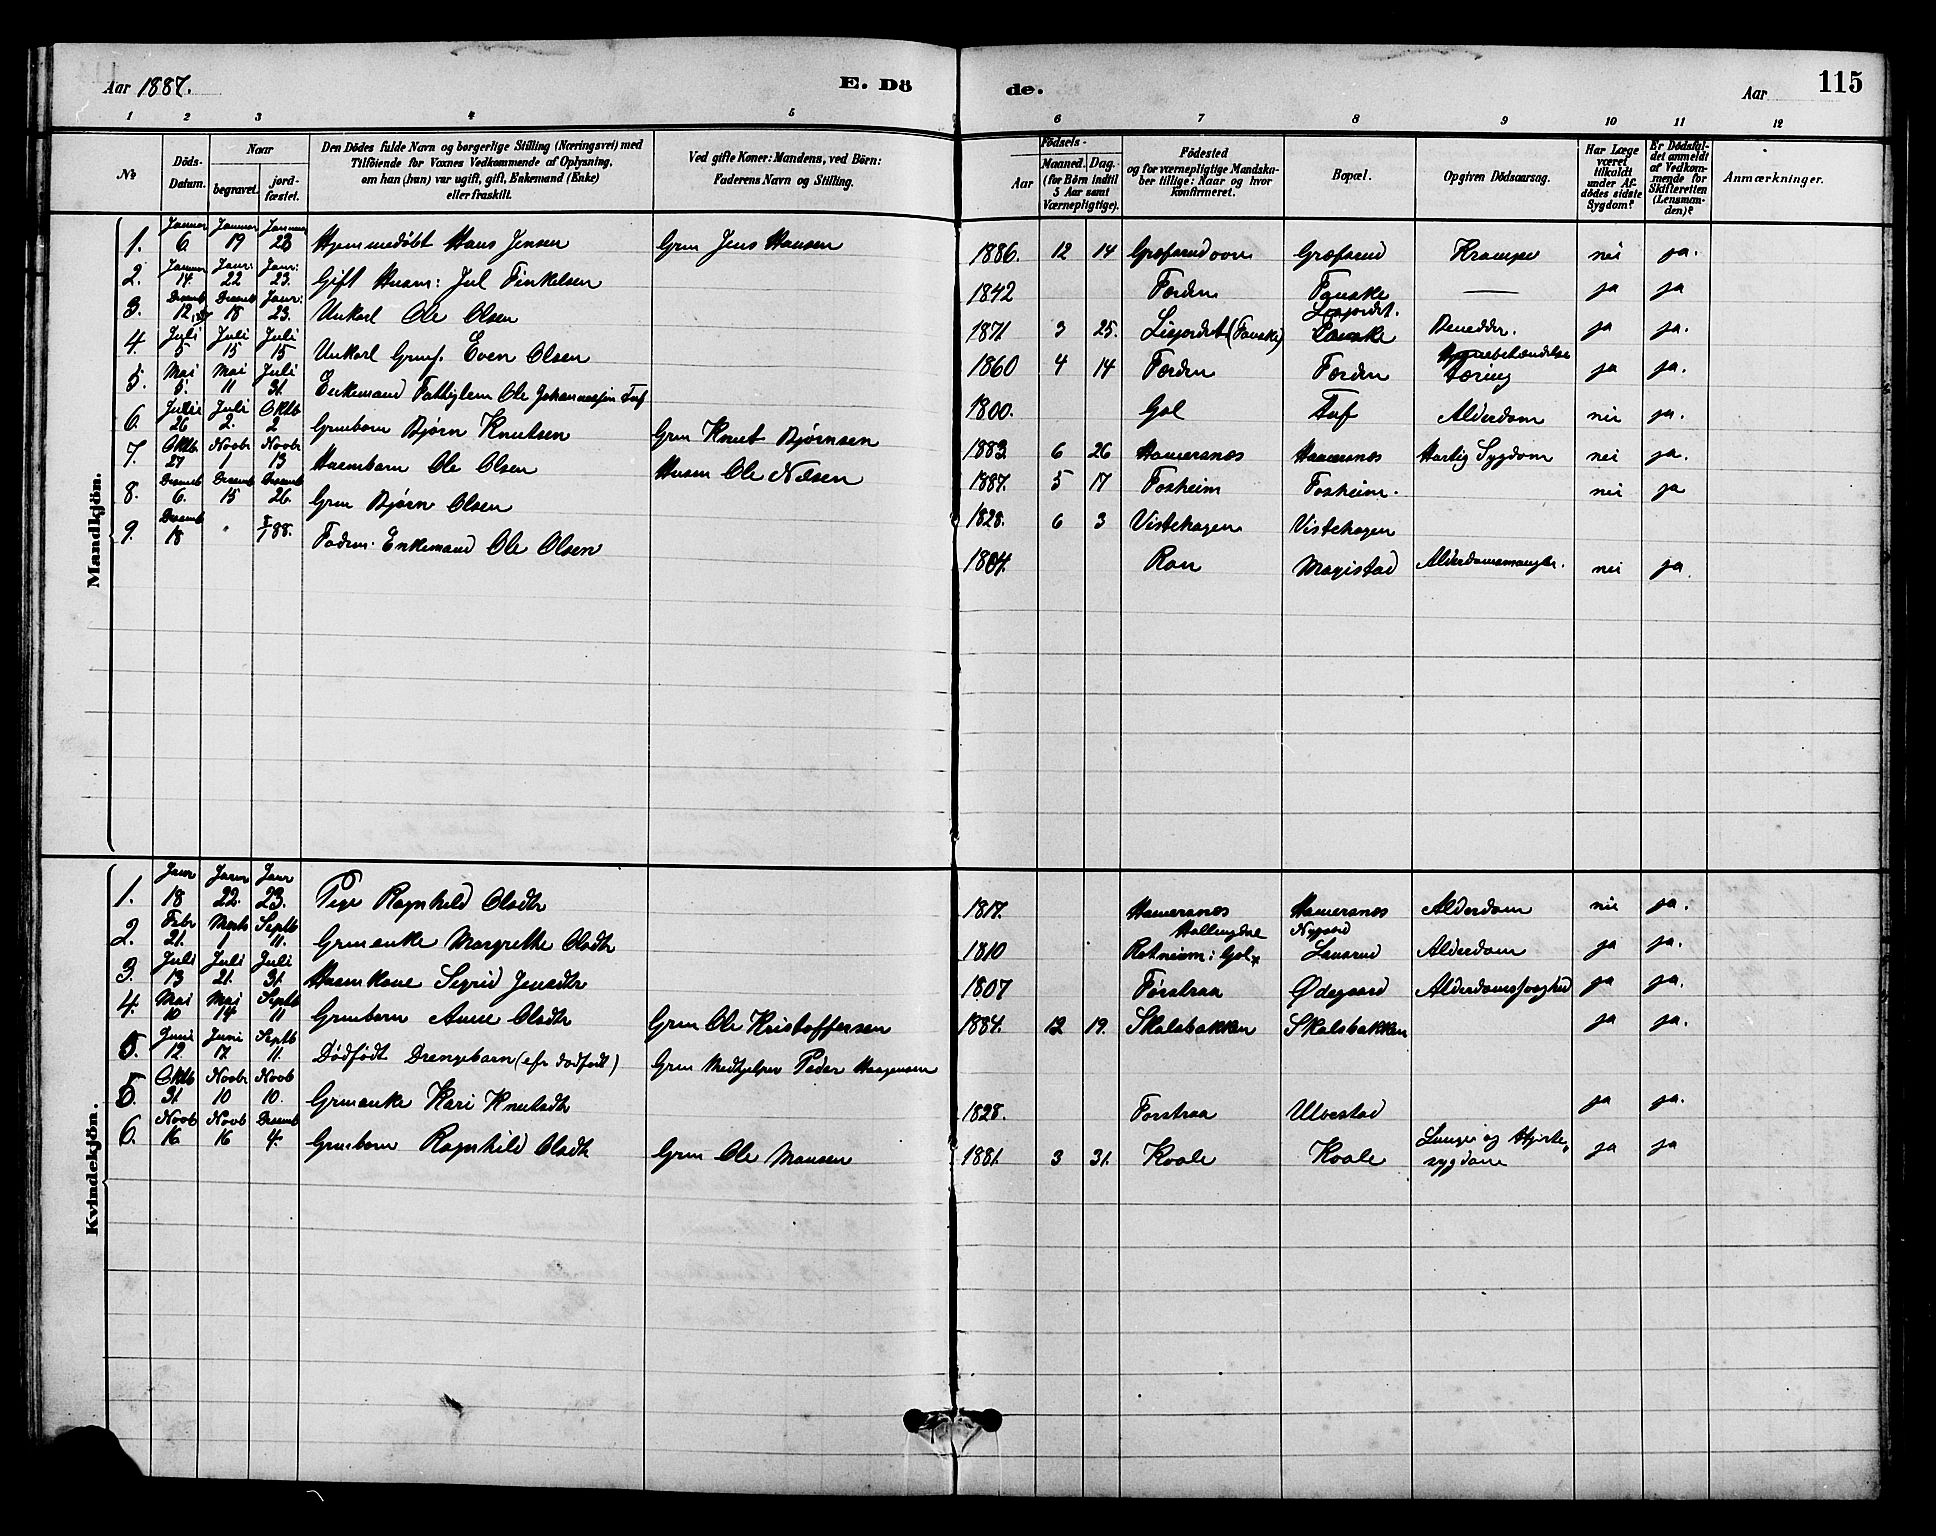 Aar 1887.
E. Dö
de.
Aar
115
1 2 3 4 5 6 7 8 9 10 11 12
No
Döds-Datum.
Naar
begravet.
jord-fæstet.
Den Dödes fulde Navn og borgerlige Stilling (Næringsvei) med
Tilföiende for Voxnes Vedkommende af Oplysning,
om han (hun) var ugift, gift, Enkemand (Enke)
eller fraskilt.
Ved gifte Koner: Mandens, ved Börn:
Faderens Navn og Stilling.
Födsels-
Aar
Maaned. Dag.
(for Börn indtil
5 Aar samt
Værnepligtige).
Födested
og for værnepligtige Mandska-
ber tillige: Naar og hvor
konfirmeret.
Bopæl.
Opgiven Dödsaarsag.
Har Læge
været
tilkaldt
under Af-
dödes sidste
Sygdom?
Er Dödsfal-
det anmeldt
af Vedkom-
mende for
Skifteretten
(Lensman-
den)?
Anmærkninger.
Mandkjön.
1. Januar 6. Januar 19 Januar 23 Hjemmedøbt Hans Jensen Grm Jens Hansen 1886. 12 14 Græfsrud Krampe nei ja.
2. Januar 14. Janr: 22 Janr: 23. Gift Husm: Jul Finkelsen 1842 Forden Fauske — ja ja
3. Decemb 12 Decemb 18 Janr: 23. Unkarl Ole Olsen 1871 3 25. Lisjordet (Fauske) Lisjordet. Fauske ja ja.
4. Juli 5 Juli 15 Juli 15 Unkarl Even Olsen 1860 4 14 Forden Forden tæring ja ja.
5. Mai 5. Mai 11 Juli 31. Enkemand Fattiglem Ole Johannessen Tuf 1800. Gol Tuf Alderdom nei ja.
6. 26 Juli 2. Oktb 2 Grmbarn Bjørn Knutsen Grm Knut Bjørnsen 1883. 6 26 Hamersnæs Hamersnæs Hartig Sygdom nei ja.
7. Oktb. 27 Novbr 1 Novbr 13 Husmbarn Ole Olsen Husm Ole Nilsen 1887. 5 17 Fosheim Fosheim. nei ja
8. Decemb 6. Decemb 15 Decemb 26. Grm Bjørn Olsen 1828. 6 3 Vistehagen Vistehagen
9. Decemb 18 " 88. Enkemand Ole Olsen 1804. Ron Magistad nei ja.
Kvindekjön.
1. Janr 18 Janr 22. Janr 23. Pige Ragnhild Olsdtr 1817. Hamersnæs Hamersnæs Alderdom nei ja.
2. Febr 21. Marts 1 Septb 11. Grmanke Margrethe Olsdtr 1810 Hallingdal Gol Alderdom ja ja.
3. Juli 13 Juli 21. Juli 31. Husmkone Sigrid Jensdtr 1807 Førstraa Ødegaard ja ja.
4. Mai 10 Mai 14 Septb 11 Grmbarn Anne Olsdtr Grm Ole Kristoffersen 1884. 12 19. Skalsbakken Skalsbakken ja ja.
5. Juni 12 Juni 17 Septb 11. Dödfödt Drengebarn Grm Medhjelper Peder Haagensen
5. Oktb 31. Novbr 10 Novb 10. Grmanke Kari Knutsdtr 1828. Forstraa Ulvestad ja ja.
6. Novb 16 Novb 16 Decemb 4. Grmbarn Ragnhild Olsdtr Grm Ole Hansen 1881. 3 31. Kvale Kvale Lunge og Hjerte
sygdom ja ja